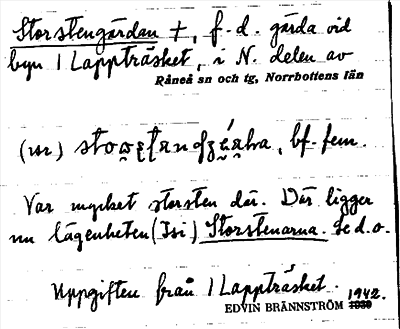 Storstengärdan +, f. d. gärda vid
byn 1 Lappträsket, i N. delen av
Råneå sn och tg, Norrbottens län
bf. fem.
Var mycket storsten där. Där ligger
nu lägenheten (Isi) Storstenarna. Se d. o.
Uppgiften från 1 Lappträsket.
1942.
EDVIN BRÄNNSTRÖM 1939